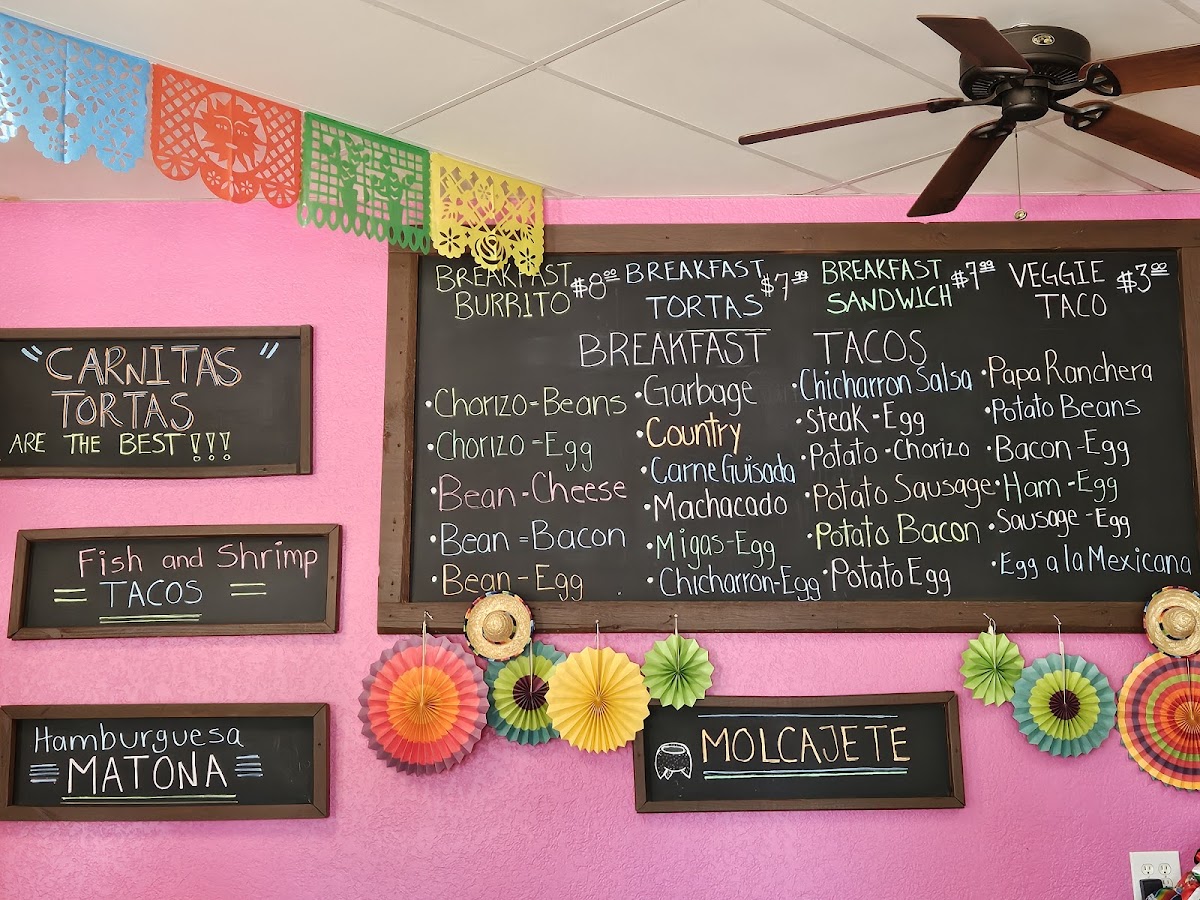 BREAKFAST BURRITO $8.00
BREAKFAST TORTAS $7.99
BREAKFAST SANDWICH $7.00
VEGGIE TACO $3.00
BREAKFAST TACOS
• Chorizo-Beans
• Chorizo-Egg
• Bean-Cheese
• Bean=Bacon
• Bean-Egg
• Garbage
• Country
• Carne Guisada
• Machacado
• Migas-Egg
• Chicharron-Egg
• Chicharron Salsa
• Steak-Egg
• Potato-Chorizo
• Potato Sausage
• Potato Bacon
• Potato Egg
• Papa Ranchera
• Potato Beans
• Bacon-Egg
• Ham-Egg
• Sausage-Egg
• Egg a la Mexicana
"CARNITAS"
TORTAS
ARE THE BEST!!!
Fish and Shrimp
TACOS
Hamburguesa
MATONA
MOLCAJETE